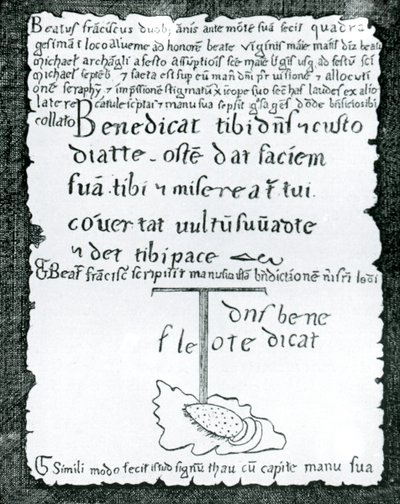 Beatus frāciscus duob; ānis ante mōtē suā fecit quadra
gesimā ī loco alverne ad honorē beate virginis māie matis dei ⁊ beati
michael archāgli a festo assūptiōis scē māie v̓gīs usq; ad festū scī
michael septēb. ⁊ facta est sup eū man̓ dn̄i p̓ visionē ⁊ allocuti
onē seraphy ⁊ impssionē stigmatū ī corpe suo fec̓ has laudes ex alio
latere catule scptas ⁊ manu sua scpsit gr̄as agēs dn̄o de bn̄ficio sibi
collato
Benedicat tibi dn̄s ⁊ custo
diat te. ostēdat faciem
suā. tibi ⁊ misereat̓ tui.
cōvertat vultū suū ad te
⁊ det tibi pace
Beat̓ frācisc̓ scripsit manu sua istā bn̄dictionē m̄ fr̄i leōi
dn̄s bene
f le o te dicat
Simili modo fecit istud signū thau cū capite manu sua